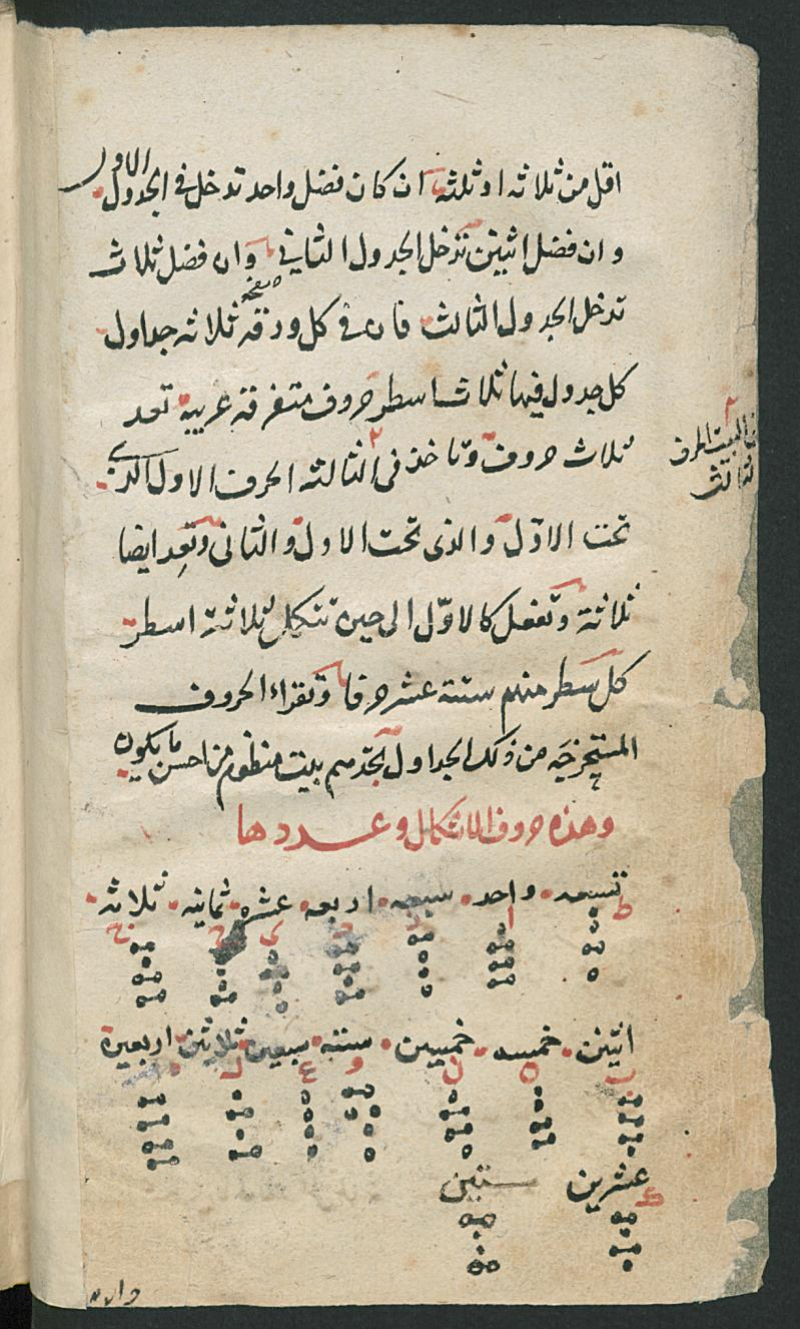 اقل من ثلاثه او ثلثه ان كان فضل واحد تدخل في الجدول الاول
و ان فضل اثنين تدخل الجدول الثاني وان فضل ثلاث
تدخل الجدول الثالث فان في كل ورقه صفحه ثلاثه جداول
كل جدول فيها ثلاث اسطر حروف متفرقه عربيه تعد
ثلاث حروف وتاخذ في الثالثه الحرف الاول الذي
تحت الاوّل والذي تحت الاول والثاني وتعد ايضا
ثلاثة وتفعل كالاوّل الى حين تتكمل ثلاثة اسطر
كل سطر منهم ستة عشر حرفا وتقراء الحروف
المستخرجه من ذلك الجداول تجدهم بيت منظوم من احسن ما يكون
وهذه حروف الاشكال وعددها
تسعه واحد سبعه اربعه عشره ثمانيه ثلاثه
ط ا ز د ى ح ج
اثنين خمسه خمسين سته سبعين ثلاثين اربعين
ب ه ن و ع ل
عشرين ستين
ك